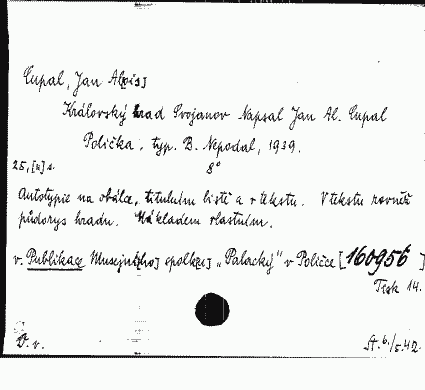 Čupal, Jan Al[ois]
Královský hrad Svojanov Napsal Jan Al. Čupal
Polička, typ. B. Nepodal, 1939.
25, [4] s. 8°
Autotypie na obálce, titulním listě a v textu. V textu rovněž
půdorys hradu. Nákladem vlastním.
v. Publikace Musejní[ho] spolk[u] „Palacký" v Poličce [160956]
Tisk 14.
D. v.
St. 6./5.42